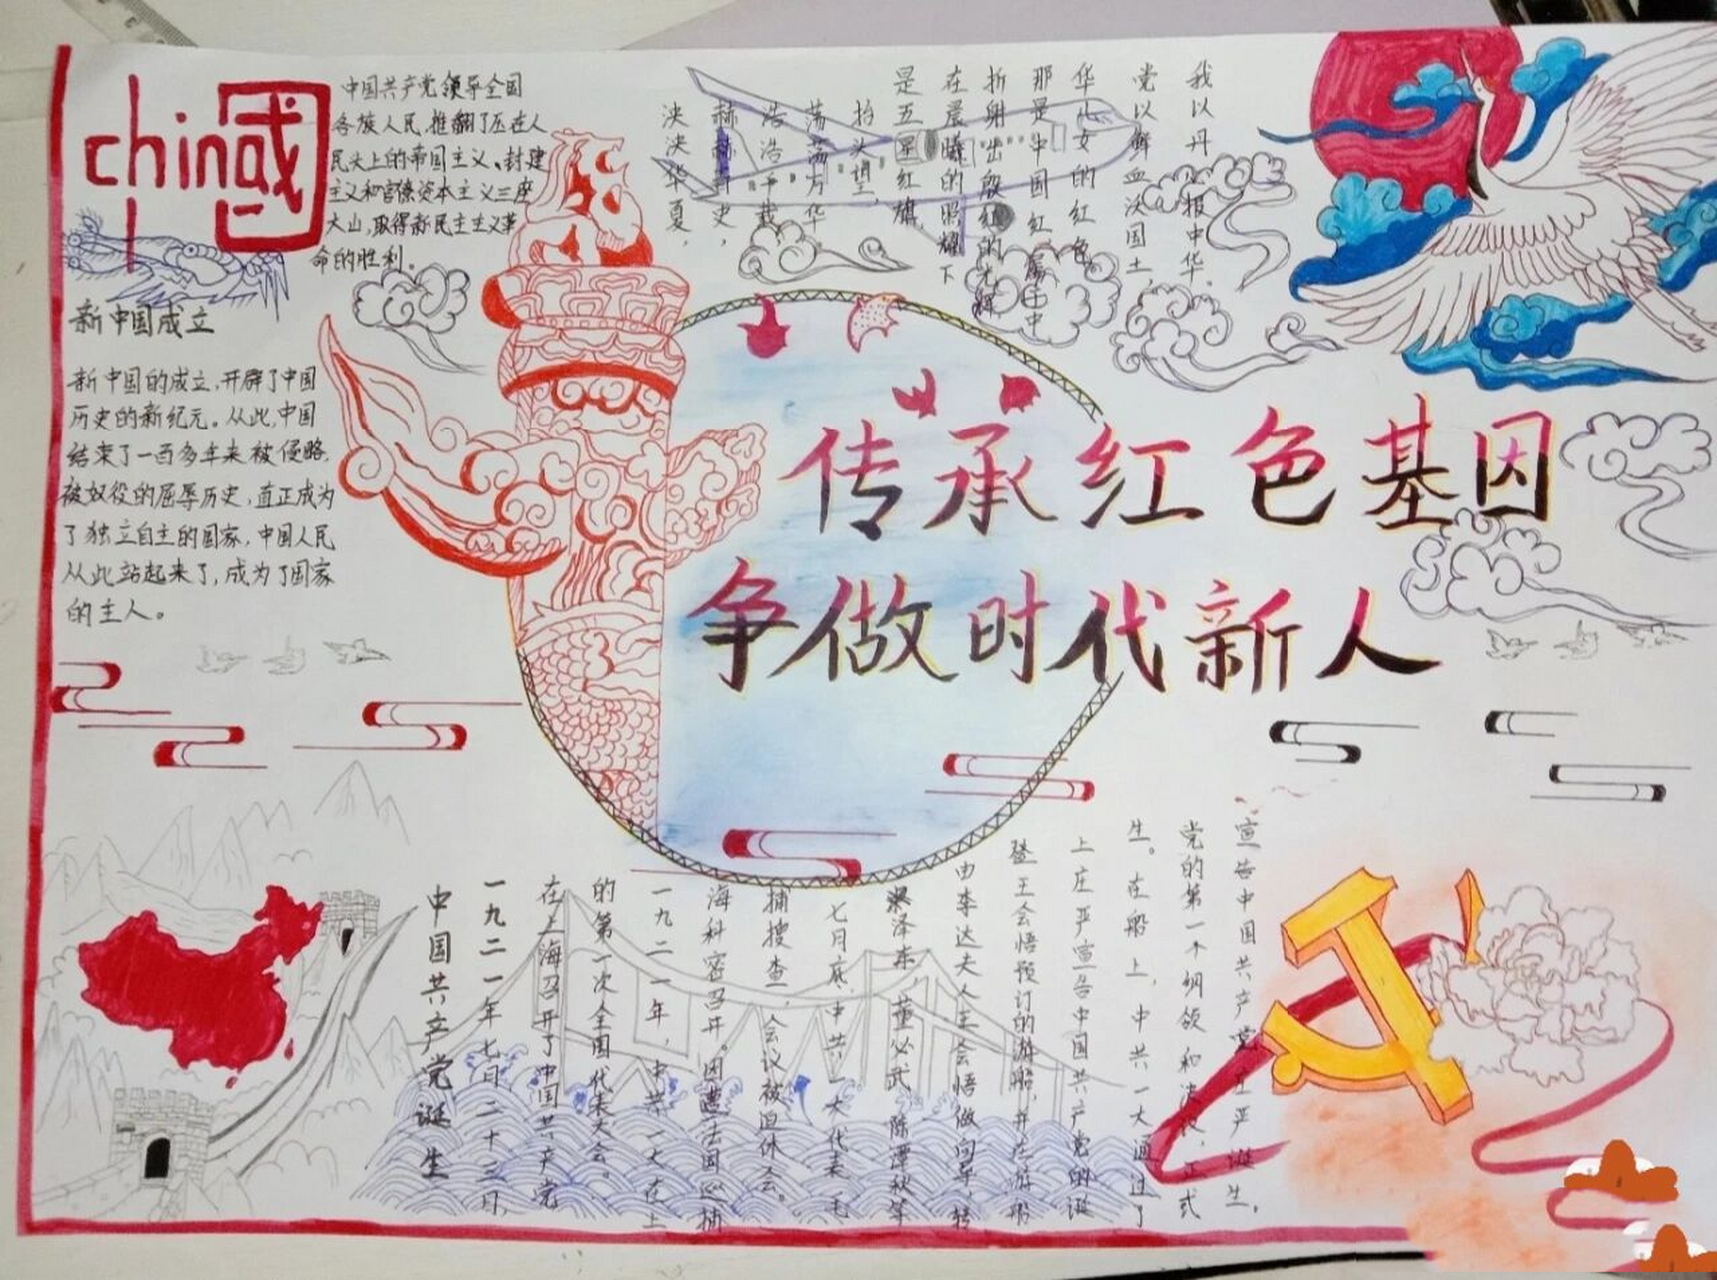 chin國
中国共产党领导全国
各族人民,推翻了压在人
民头上的帝国主义、封建
主义和官僚资本主义三座
大山,取得新民主主义革
命的胜利。
新中国成立
新中国的成立,开辟了中国
历史的新纪元。从此,中国
结束了一百多年来被侵略,
被奴役的屈辱历史,真正成为
了独立自主的国家,中国人民
从此站起来了,成为了国家
的主人。
泱泱华夏,
赫赫历史,
浩浩千载
荡荡万华
抬头望,
是五星红旗,
在晨曦的照耀下
折射出殷红的光辉
那是中国红,属于中
华儿女的红色
党以鲜血沃国土,
我以丹心报中华。
传承红色基因
争做时代新人
中国共产党诞生
一九二一年七月二十三日,
在上海召开了中国共产党
的第一次全国代表大会。
一九二一年,中共一大在上
海秘密召开。因遭法国巡捕
捕搜查,会议被迫休会。
七月底,中共一大代表毛
泽东,董必武,陈潭秋等
由李达夫人王会悟做向导,转
登王会悟预订的游船,并在游船
上庄严宣告中国共产党的诞
生。在船上,中共一大通过了
党的第一个纲领和决议,正式
宣告中国共产党庄严诞生。